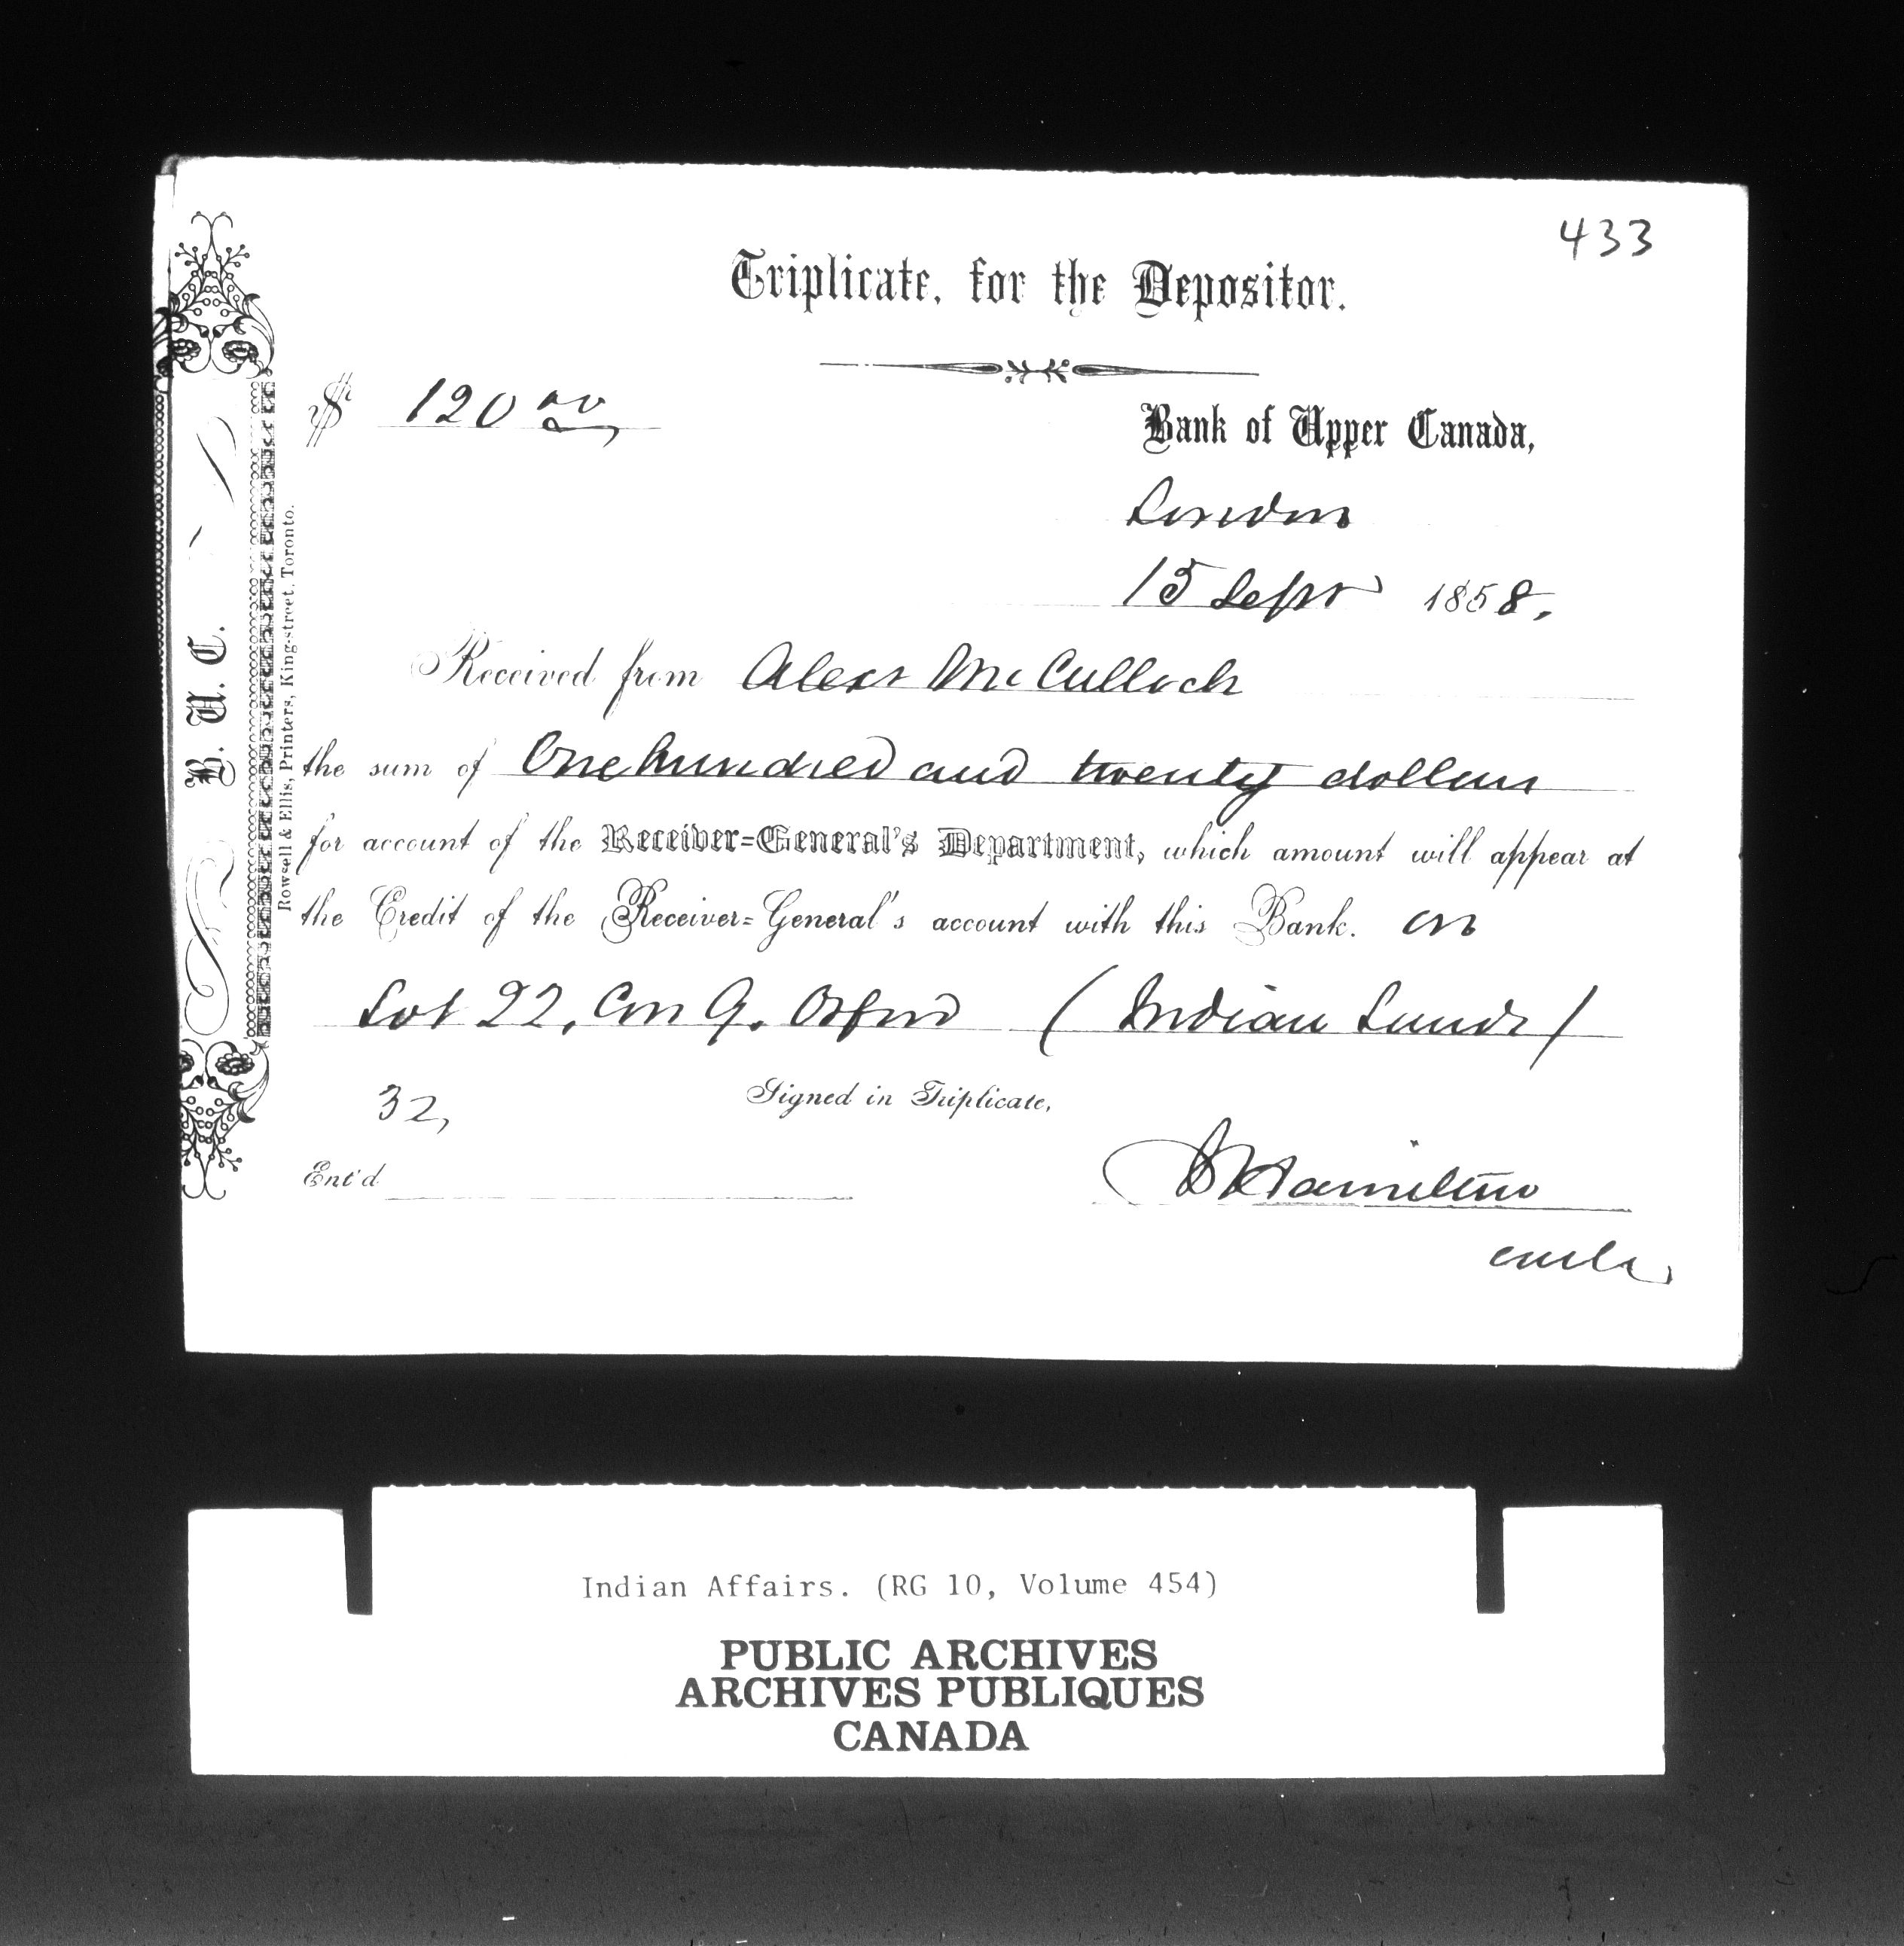 433
Triplicate, for the Depositor.
$ 120 00
Bank of Upper Canada,
London
15 Sept 1858.
Received from Alexr McCulloch
the sum of One hundred and twenty dollars
for account of the Receiver=General's Department, which amount will appear at
the Credit of the Receiver=General's account with this Bank. on
Lot 22, Con 9. Orford (Indian Lands)
32,
Signed in Triplicate,
Ent'd
Hamilton
B. U. C.
Rowsell & Ellis, Printers, King-street, Toronto.
Indian Affairs. (RG 10, Volume 454)
PUBLIC ARCHIVES
ARCHIVES PUBLIQUES
CANADA